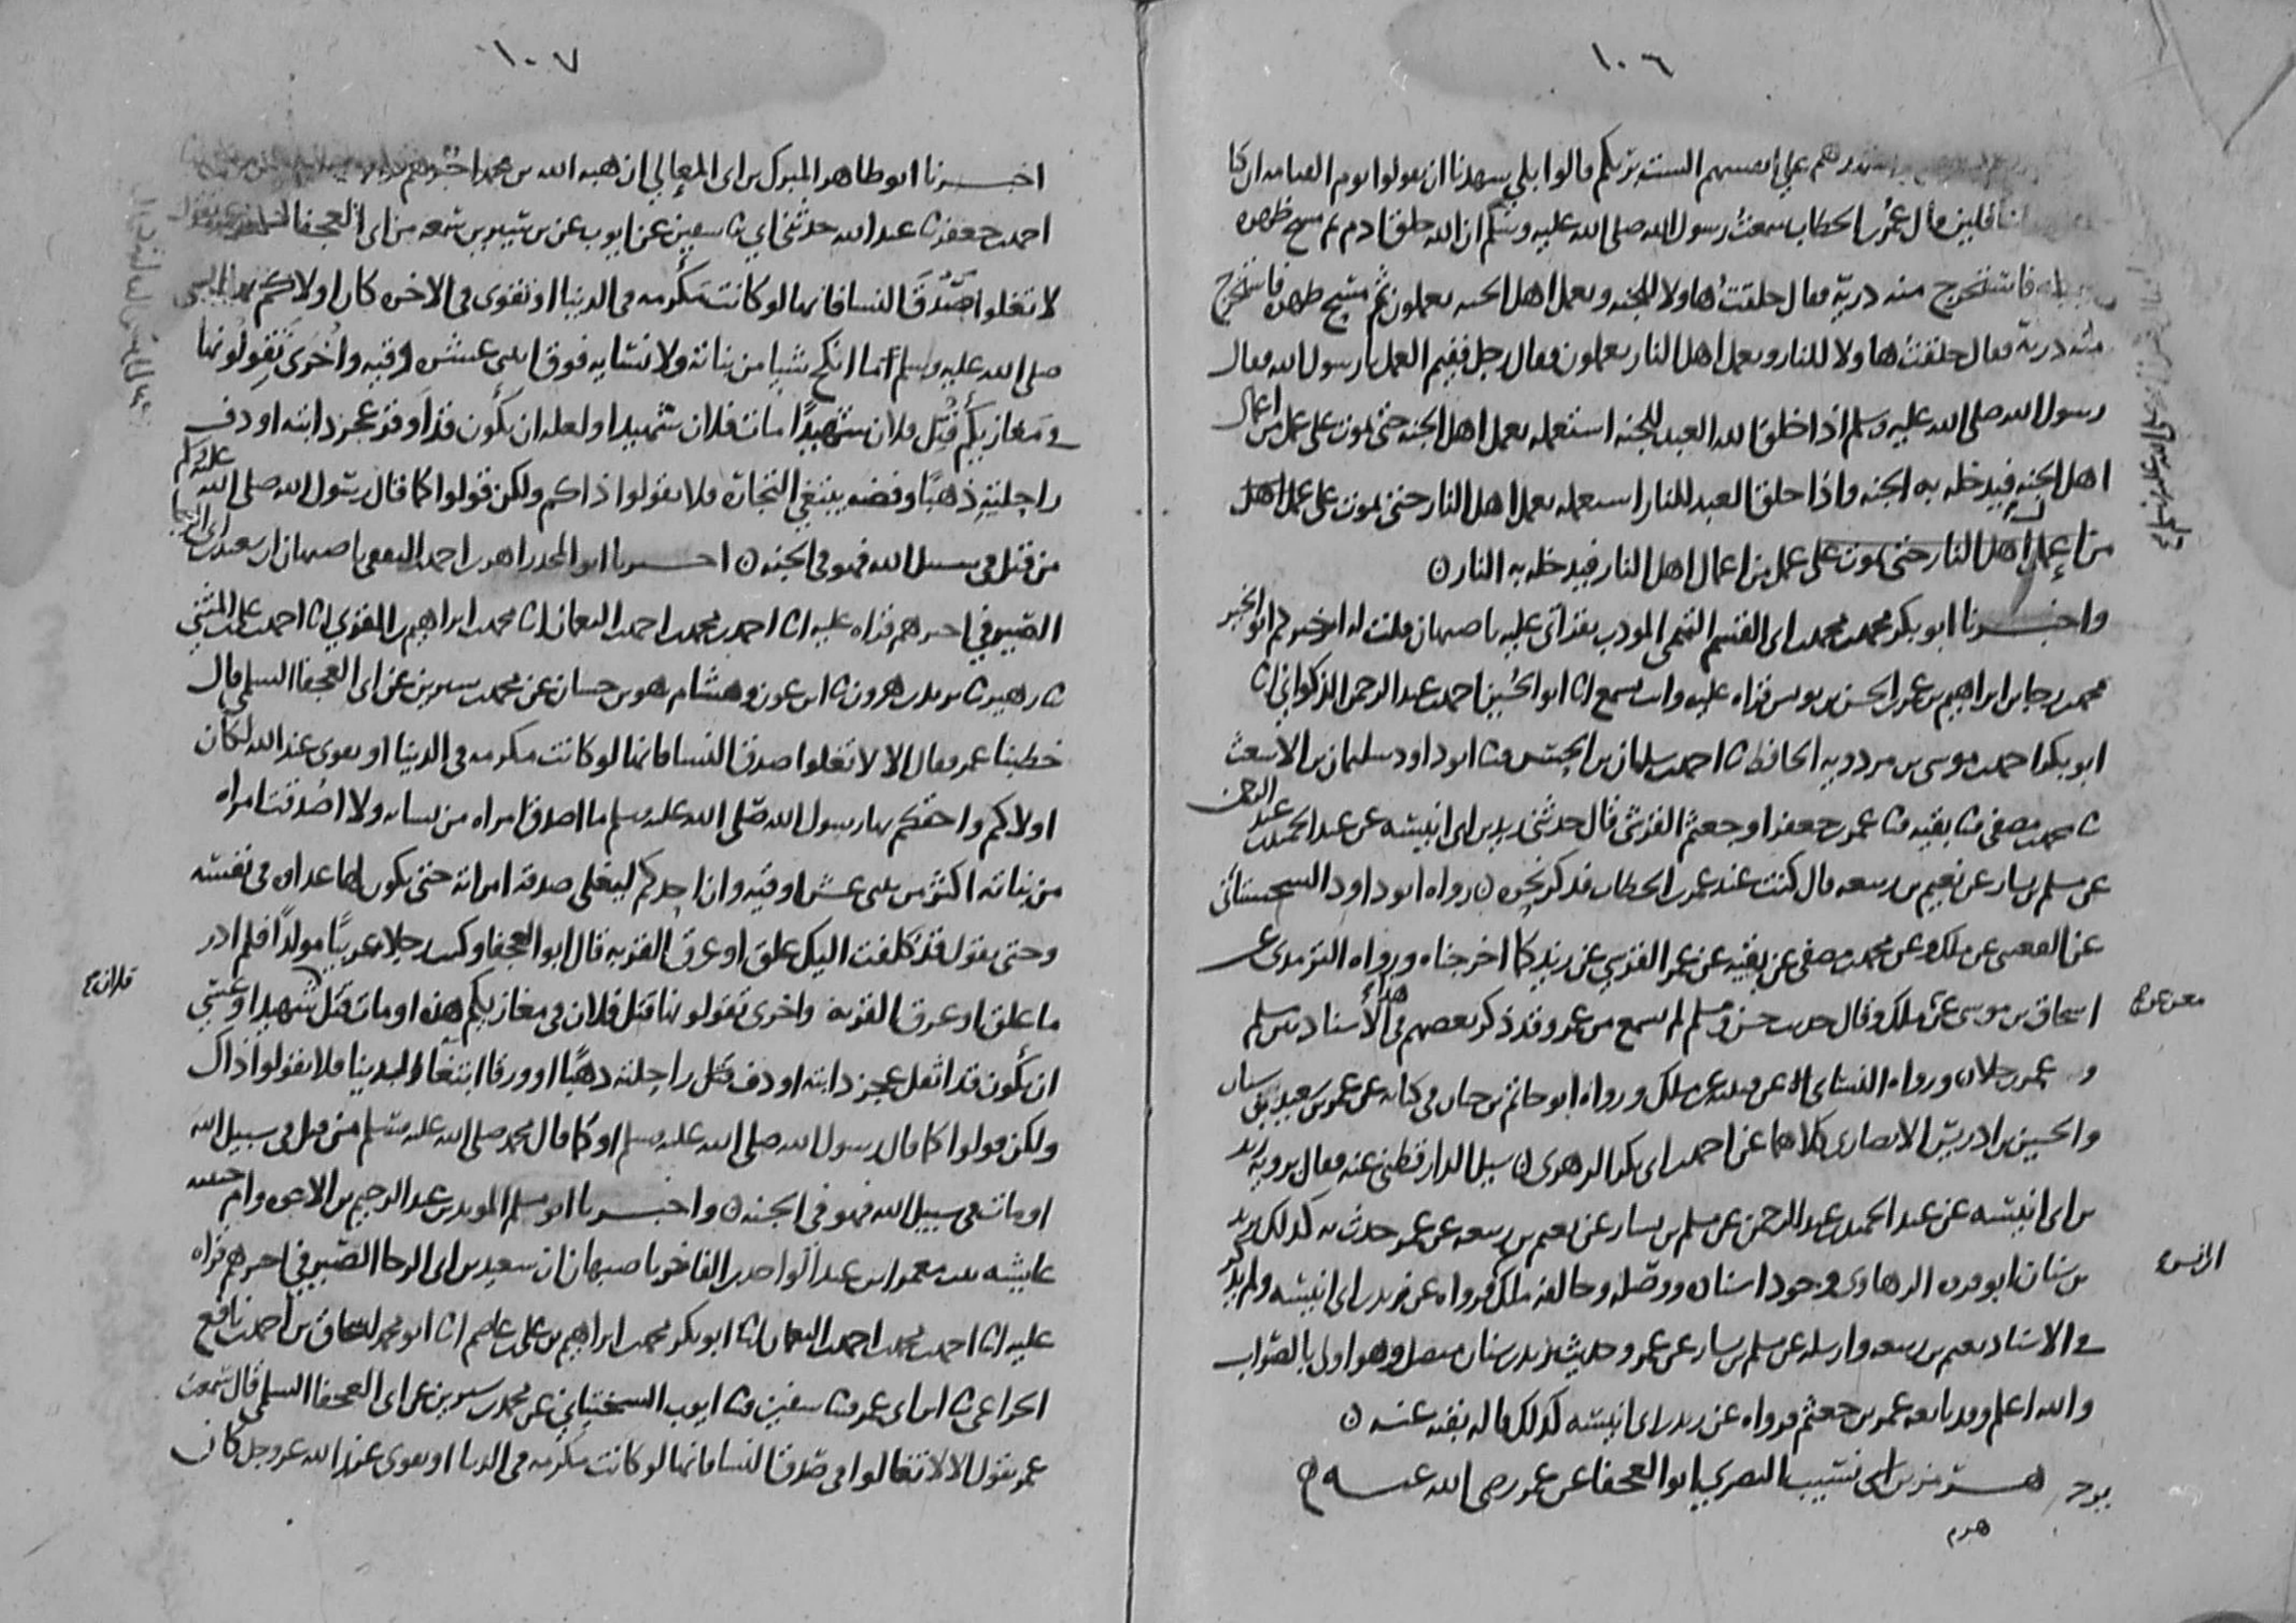 ١٠٦
على انفسهم الست بربكم قالوا بلى شهدنا ان يقولوا يوم القيامه ان كنا
غافلين قال عمر بن الخطاب سمعت رسول الله صلى الله عليه وسلم ان الله خلق ادم ثم مسح ظهره
فاستخرج منه ذرية فقال خلقت هاولا للجنه وبعمل اهل الجنه يعملون ثم مسح ظهره فاستخرج
منه ذرية فقال خلقت هاولا للنار وبعمل اهل النار يعملون فقال رجل ففيم العمل يا رسول الله فقال
رسول الله صلى الله عليه وسلم اذا خلق الله العبد للجنه استعمله بعمل اهل الجنه حتى يموت على عمل من اعمال
اهل الجنه فيدخله به الجنه واذا خلق العبد للنار استعمله بعمل اهل النار حتى يموت على عمل اهل
من اعمال اهل النار حتى يموت على عمل من اعمال اهل النار فيدخله به النار ن
واخبرنا ابو بكر محمد بن محمد بن ابى القسم التميمى المودب بقراتى عليه باصبهان قلت له اخبركم ابو الخير
محمد بن رجا بن ابراهيم بن عمر بن الحسن بن يونس قراه عليه وانت تسمع انا ابو الحسين احمد بن عبد الرحمن الذكوانى انا
ابو بكر احمد بن موسى بن مردويه الحافظ نا احمد بن سلمان بن الحسن نا ابو داود سليمان بن الاشعث
نا محمد بن مصفى نا بقيه نا عمر بن جعفر او جعثم القرشى قال حدثنى زيد بن ابى انيسه عن عبد الحميد بن عبد الرحمن
عن مسلم بن يسار عن نعيم بن ربيعه قال كنت عند عمر بن الخطاب فذكر نحوه ن رواه ابو داود السجستانى
عن القعنبى عن ملك وعن محمد بن مصفى عن بقيه عن عمر القرشى عن زيد كما اخرجناه ورواه الترمذى عن
اسحاق بن موسى عن معن عن ملك وقال حديث حسن ومسلم لم يسمع من عمر وقد ذكر بعضهم فى هذا الاسناد بين مسلم
وعمر رجلا ن ورواه النسائى عن قتيبه عن ملك ورواه ابو حاتم بن حبان فى كتابه عن عمر بن سعيد بن سنان
والحسين بن ادريس الانصارى كلاهما عن احمد بن ابى بكر الزهرى ن سيل الدارقطنى عنه فقال يرويه زيد
بن ابى انيسه عن عبد الحميد بن عبد الرحمن عن مسلم بن يسار عن نعيم بن ربيعه عن عمر حدث به كذلك يزيد
بن سنان ابو فروه الرهاوى وجود اسناده ووصله وخالفه ملك فرواه عن زيد بن ابى انيسه ولم يذكر
فى الاسناد نعيم بن ربيعه وارسله عن مسلم بن يسار عن عمر وحديث يزيد بن سنان متصل وهو اولى بالصواب
والله اعلم وقد تابعه عمر بن جعثم فرواه عن زيد بن ابى انيسه كذلك قاله بقيه عنه ن
هرمز بن ابى نسيب البصرى ابو العجفا عن عمر رضى الله عنه
هرم
١٠٧
اخبرنا ابو طاهر المبرك بن ابى المعالى ان هبه الله بن محمد اخبرهم
احمد بن جعفر نا عبد الله حدثنى ابى نا سفين عن ايوب عن بن سيرين سمعه من ابى العجفا
لا تغلوا صدق النسا فانها لو كانت مكرمه فى الدنيا او تقوى فى الاخره كان اولاكم بها النبى
صلى الله عليه وسلم ما انكح شيا من بناته ولا نسايه فوق اثنى عشر وقيه واخرى تقولونها
فى مغازيكم قتل فلان شهيدا مات فلان شهيدا ولعله ان يكون قد اوقر عجز دابته او دف
راحلته ذهبا وفضه يبتغى التجاره فلا تقولوا ذاكم ولكن قولوا كما قال رسول الله صلى الله عليه وسلم
من قتل فى سبيل الله فهو فى الجنه ن اخبرنا ابو المجد زاهر بن احمد الثقفى باصبهان ان سعيد بن ابى الرجا
الصيرفى اخبرهم قراه عليه انا احمد بن محمد بن احمد بن النعمان انا محمد بن ابراهيم بن المقرى انا احمد بن على بن المثنى
نا زهير نا يزيد بن هرون نا ابن عون وهشام هو بن حسان عن محمد بن سيرين عن ابى العجفا السلمى قال
خطبنا عمر فقال الا لا تغلوا صدق النسا فانها لو كانت مكرمه فى الدنيا او تقوى عند الله لكان
اولاكم واحقكم بها رسول الله صلى الله عليه وسلم ما اصدق امراه من نسايه ولا اصدقت امراه
من بناته اكثر من اثنى عشر اوقيه وان احدكم ليغلى صدقه امراته حتى يكون لها عداوه فى نفسه
وحتى يقول قد كلفت اليك علق او عرق القربه قال ابو العجفا وكنت رجلا عربيا مولدا فلم ادر
ما علق او عرق القربه واخرى تقولونها قتل فلان فى مغازيكم هذه او مات قتل فلان شهيدا وعسى
ان يكون قد اثقل عجز دابته او دف راحلته ذهبا او ورقا ابتغا الدنيا فلا تقولوا ذاك
ولكن قولوا كما قال رسول الله صلى الله عليه وسلم او كما قال محمد صلى الله عليه وسلم من قتل فى سبيل الله
او مات فى سبيل الله فهو فى الجنه ن واخبرنا ابو مسلم المويد بن عبد الرحيم بن الاخوه وام حبيبه
عايشه بنت معمر بن عبد الواحد بن الفاخر باصبهان ان سعيد بن ابى الرجا الصيرفى اخبرهم قراه
عليه انا احمد بن محمد بن احمد بن النعمان انا ابو بكر محمد بن ابراهيم بن على بن عاصم انا ابو محمد اسحاق بن احمد بن نافع
الخزاعى نا ابن ابى عمر نا سفين نا ايوب السختيانى عن محمد بن سيرين عن ابى العجفا السلمى قال سمعت
عمر يقول الا لا تغالوا فى صدق النسا فانها لو كانت مكرمه فى الدنيا او تقوى عند الله عز وجل كان